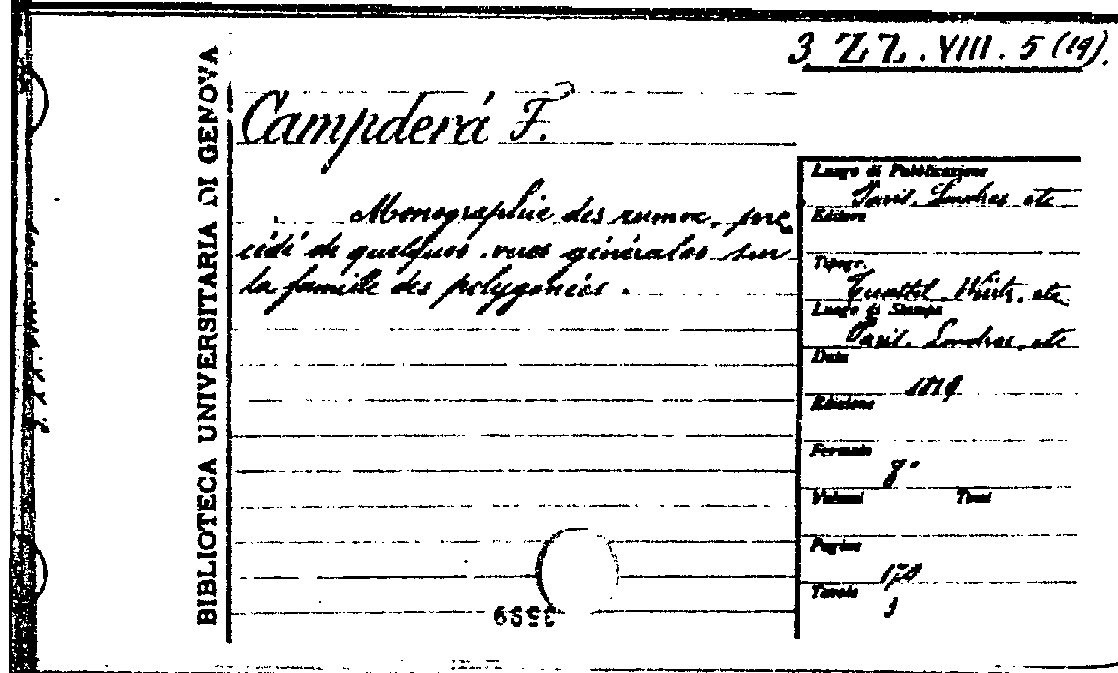 3 ZZ. VIII. 5 (19).
BIBLIOTECA UNIVERSITARIA DI GENOVA
Campderá F.
Monographie des rumex, pré
cédé de quelques vues générales sur
la famille des polygonées.
Luogo di Pubblicazione
Paris, Londres, etc
Editore
Tipogr.
Treuttel, Würtz, etc
Luogo di Stampa
Paris, Londres, etc
Data
1819
Edizione
Formato
8°
Volumi Tomi
Pagine
170
Tavole
3